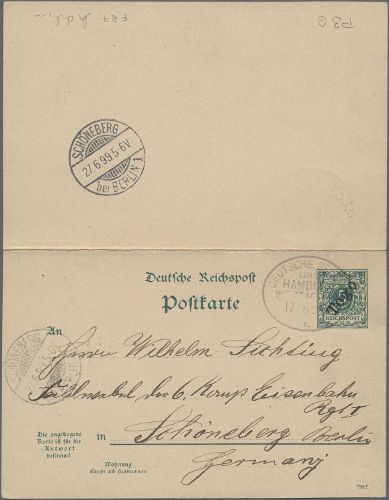 P3 O
SCHÖNEBERG
27.6.99.5-6V
bei BERLIN 1
Deutsche Reichspost
Postkarte
DEUTSCHE
LINIE
HAMBURG
17
Togo
REICHSPOST
An
SCHÖNEBERG
Herrn Wilhelm Fichting
Feldwebel des 6. Komp Eisenbahn
Rgt I
Die angebogene
Karte ist für die
Antwort
bestimmt
in Schöneberg Berlin
Wohnung
(Straße und Hausnummer)
Germany